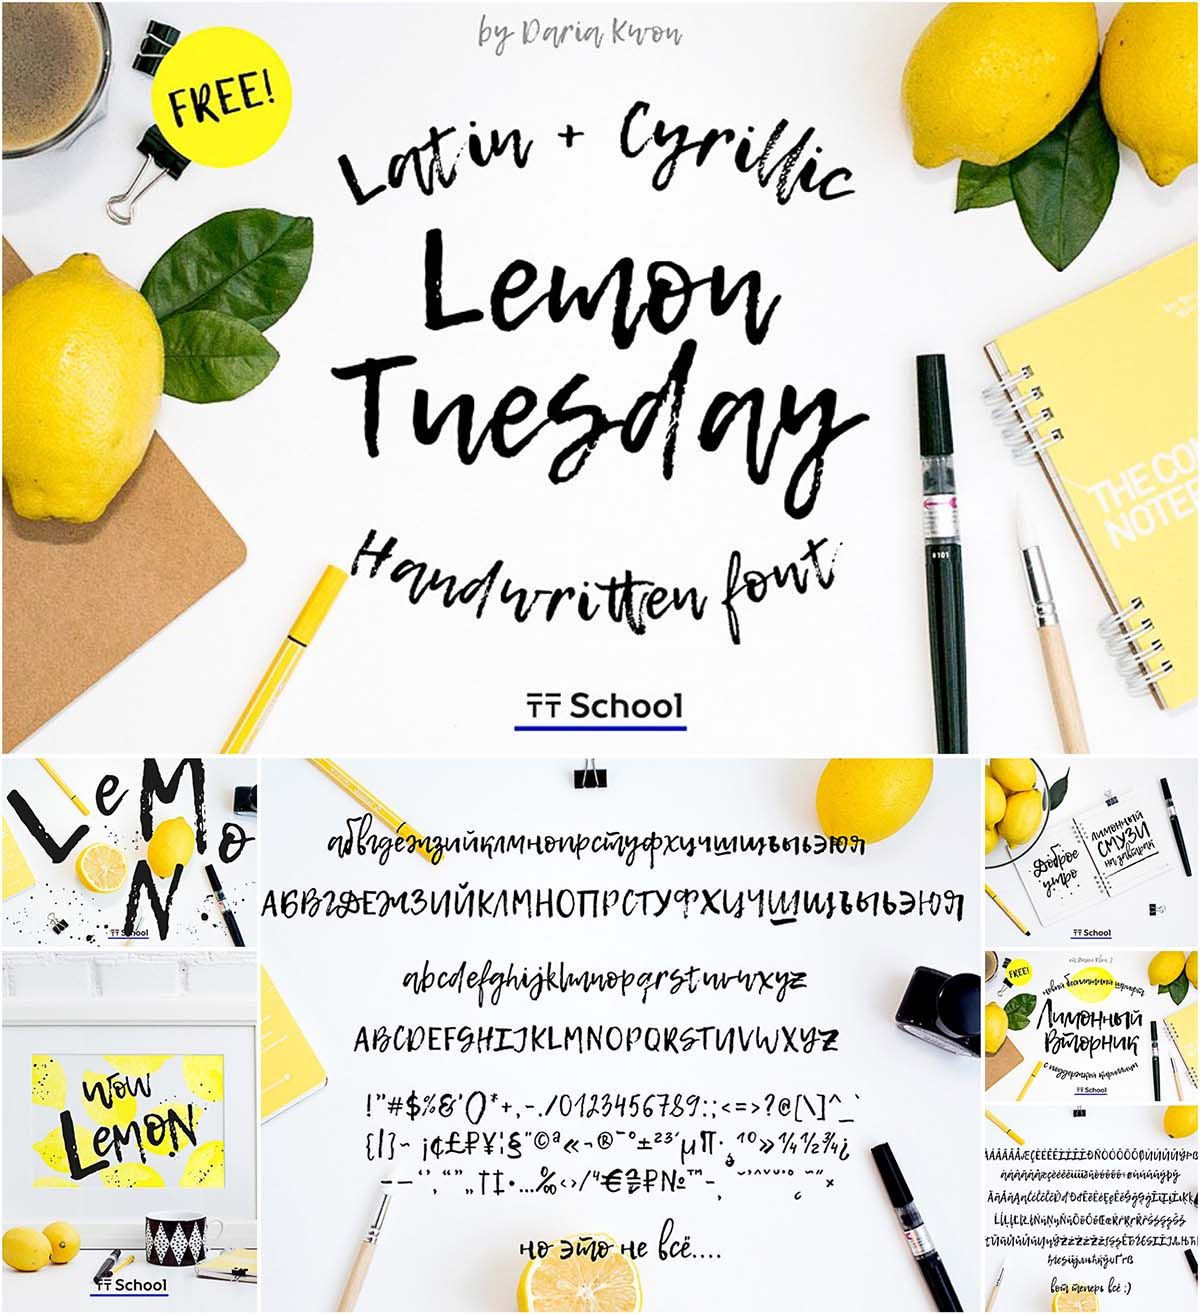 by Daria Kwon
FREE!
Latin + Cyrillic
Lemon
Tuesday
Handwritten font
TT School
#101
THE CO
NOTE
LeMoN
TT School
абвгдеёжзийклмнопрстуфхцчшщъыьэюя
АБВГДЕЖЗИЙКЛМНОПРСТУФХЦЧШЩЪЫЬЭЮЯ
abcdefghijklmnopqrstuvwxyz
ABCDEFGHIJKLMNOPQRSTUVWXYZ
!"#$%&'()*+,-./0123456789:;<=>?@[\]^_`
{|}~ ¡¢£₽¥¦§¨©ª«¬®¯°±²³´µ¶·¸¹º»¼½¾¿
но это не всё....
Доброе
утро
лимонный
СМУЗИ
на завтрак
TT School
wow
LEMON
TT School
FREE!
новый бесплатный шрифт
Лимонный
Вторник
с поддержкой кириллицы
TT School
вот теперь всё :)